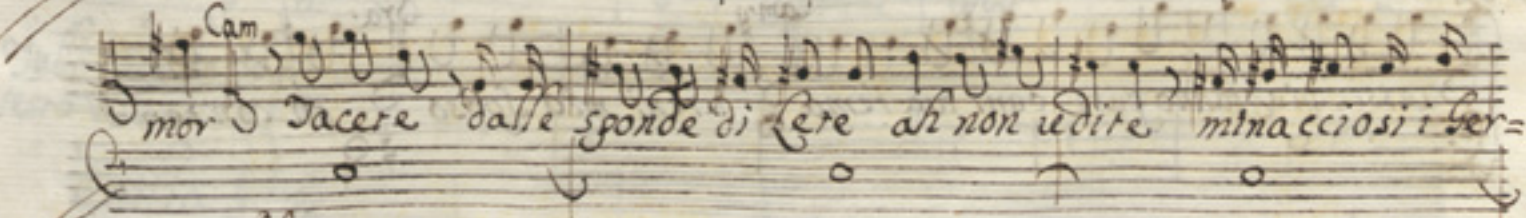 Cam
mor Tacete dalle sponde di Lete ah non udite minacciosi i Ger=